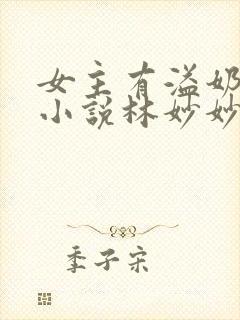 女主有溢奶
小说林妙妙
季子宋